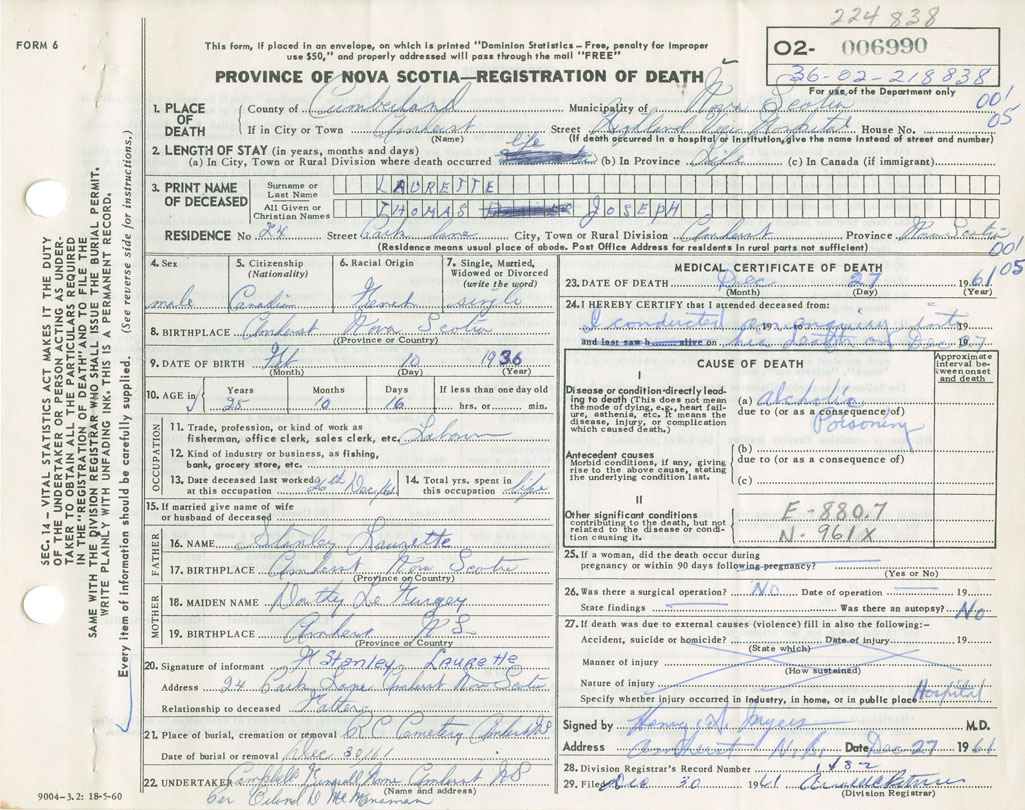 224 838
FORM 6
This form, if placed in an envelope, on which is printed "Dominion Statistics – Free, penalty for improper
use $50," and properly addressed will pass through the mail "FREE"
O2- 006990
36-02-218838
For use of the Department only
PROVINCE OF NOVA SCOTIA—REGISTRATION OF DEATH
001
05
1. PLACE OF DEATH
County of Cumberland Municipality of Nova Scotia
If in City or Town Amherst Street Highland View Hospital House No.
(Name) (If death occurred in a hospital or institution, give the name instead of street and number)
2. LENGTH OF STAY (in years, months and days)
(a) In City, Town or Rural Division where death occurred life (b) In Province Life (c) In Canada (if immigrant)
3. PRINT NAME OF DECEASED
Surname or Last Name LAURETTE
All Given or Christian Names THOMAS JOSEPH
RESIDENCE No. 24 Street Park Lane City, Town or Rural Division Amherst Province Nova Scotia
(Residence means usual place of abode. Post Office Address for residents in rural parts not sufficient)
001
05
4. Sex male
5. Citizenship (Nationality) Canadian
6. Racial Origin French
7. Single, Married, Widowed or Divorced (write the word) single
8. BIRTHPLACE Amherst Nova Scotia
(Province or Country)
9. DATE OF BIRTH Feb 10 1936
(Month) (Day) (Year)
10. AGE in Years 25 Months 10 Days 16 If less than one day old hrs. or min.
OCCUPATION
11. Trade, profession, or kind of work as fisherman, office clerk, sales clerk, etc. Labour
12. Kind of industry or business, as fishing, bank, grocery store, etc.
13. Date deceased last worked at this occupation 26th Dec/61
14. Total yrs. spent in this occupation life
15. If married give name of wife or husband of deceased
FATHER
16. NAME Stanley Laurette
17. BIRTHPLACE Amherst Nova Scotia
(Province or Country)
MOTHER
18. MAIDEN NAME Dorothy Le Furgey
19. BIRTHPLACE Amherst N S
(Province or Country)
20. Signature of informant Stanley Laurette
Address 24 Park Lane Amherst Nova Scotia
Relationship to deceased Father
21. Place of burial, cremation or removal R.C. Cemetery Amherst NS
Date of burial or removal Dec 30/61
22. UNDERTAKER Campbell Funeral Home Amherst NS
(Name and address)
9004-3.2: 18-5-60
MEDICAL CERTIFICATE OF DEATH
23. DATE OF DEATH Dec 27 1961
(Month) (Day) (Year)
24. I HEREBY CERTIFY that I attended deceased from:
I conducted an enquiry into 19 to 19
and last saw h alive on his death on Dec 27 19
CAUSE OF DEATH
Approximate interval between onset and death
I
Disease or condition directly leading to death (This does not mean the mode of dying, e.g., heart failure, asthenia, etc. It means the disease, injury, or complication which caused death.)
(a) Alcholic
due to (or as a consequence of)
Poisoning
Antecedent causes
Morbid conditions, if any, giving rise to the above cause, stating the underlying condition last.
(b)
due to (or as a consequence of)
(c)
II
Other significant conditions contributing to the death, but not related to the disease or condition causing it.
E-880.7
N-961X
25. If a woman, did the death occur during pregnancy or within 90 days following pregnancy?
(Yes or No)
26. Was there a surgical operation? No Date of operation 19
State findings Was there an autopsy? No
27. If death was due to external causes (violence) fill in also the following:–
Accident, suicide or homicide? Date of injury 19
(State which)
Manner of injury
(How sustained)
Nature of injury
Specify whether injury occurred in industry, in home, or in public place Hospital
Signed by Henry S. Myers M.D.
Address Amherst N.S. Date Dec 27 1961
28. Division Registrar's Record Number 1482
29. Filed Dec 30 1961
(Division Registrar)
SEC. 14 – VITAL STATISTICS ACT MAKES IT THE DUTY
OF THE UNDERTAKER OR PERSON ACTING AS UNDER-
TAKER TO OBTAIN ALL THE PARTICULARS REQUIRED
IN THE "REGISTRATION OF DEATH" AND TO FILE THE
SAME WITH THE DIVISION REGISTRAR WHO SHALL ISSUE THE BURIAL PERMIT.
WRITE PLAINLY WITH UNFADING INK. THIS IS A PERMANENT RECORD.
Every item of information should be carefully supplied. (See reverse side for instructions.)